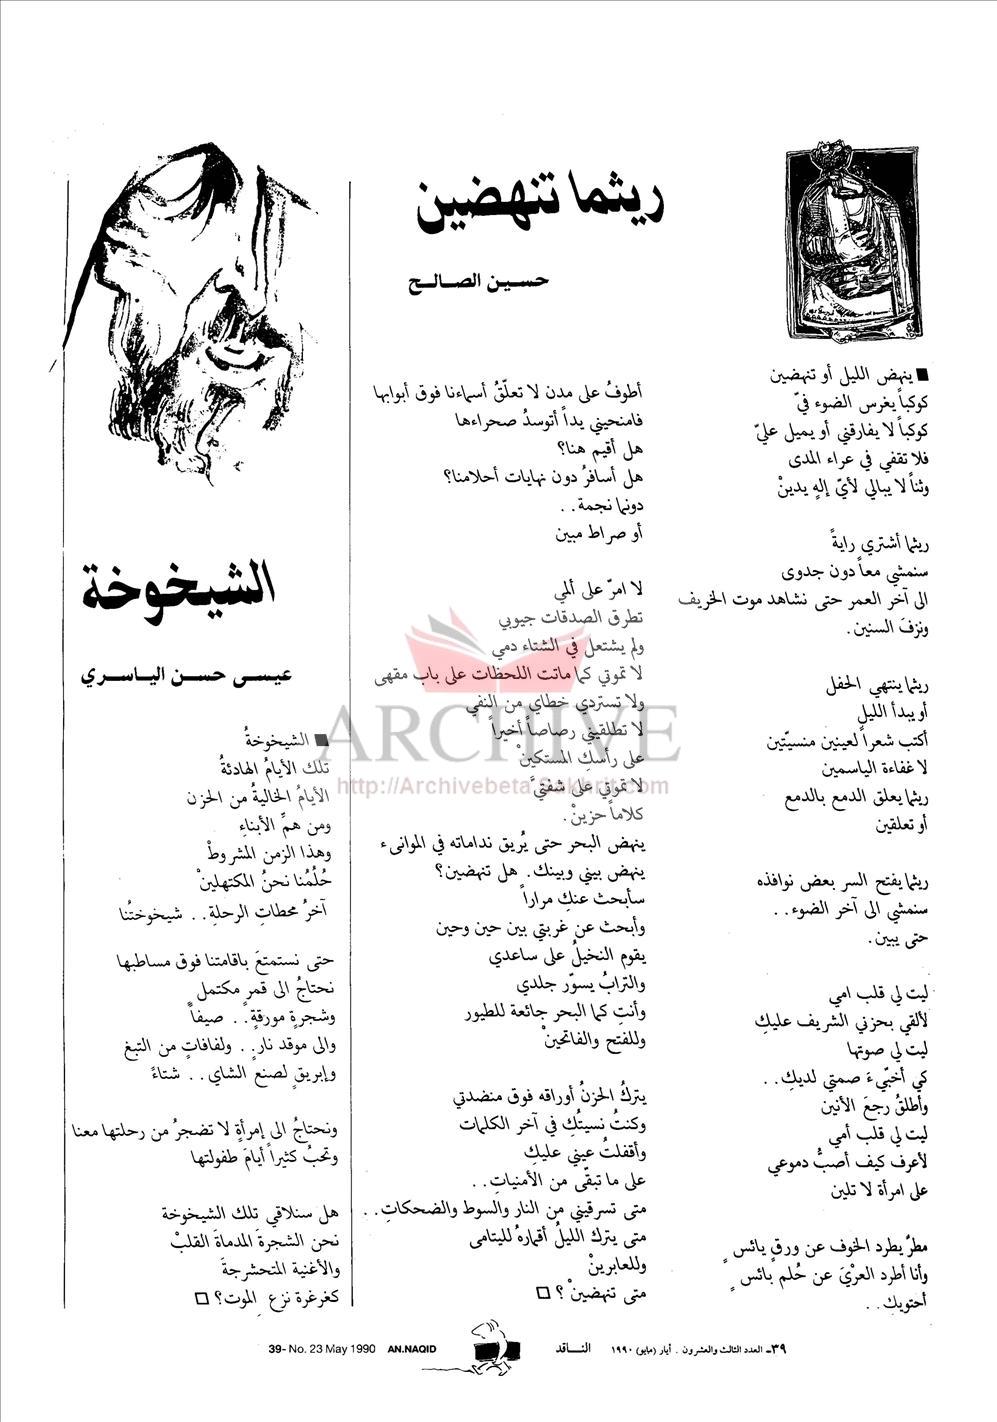 ريثما تنهضين
حسين الصالح
■ ينهض الليل أو تنهضين
كوكباً يغرس الضوء فيّ
كوكباً لا يفارقني أو يميل عليّ
فلا تقفي في عراء المدى
وثناً لا يبالي لأيّ إلهٍ يدينْ
ريثما أشتري رايةً
سنمشي معاً دون جدوى
الى آخر العمر حتى نشاهد موت الخريف
ونزفَ السنين.
ريثما ينتهي الحفل
أو يبدأ الليل
أكتب شعراً لعينين منسيّتين
لاغفاءة الياسمين
ريثما يعلق الدمع بالدمع
أو تعلقين
ريثما يفتح السر بعض نوافذه
سنمشي الى آخر الضوء..
حتى يبين.
ليت لي قلب امي
لألقي بحزني الشريف عليكِ
ليت لي صوتها
كي أخبّيءَ صمتي لديكِ..
وأطلقُ رجعَ الأنين
ليت لي قلب أمي
لأعرف كيف أصبُّ دموعي
على امرأة لا تلين
مطرٌ يطرد الخوف عن ورقٍ يائسٍ
وأنا أطرد العرْيَ عن حُلم بائسٍ
أحتويكِ..
أطوفُ على مدن لا تعلّقُ أسماءنا فوق أبوابها
فامنحيني يداً أتوسدُ صحراءها
هل أقيم هنا؟
هل أسافرُ دون نهايات أحلامنا؟
دونما نجمة..
أو صراط مبين
لا امرّ على ألمي
تطرق الصدقات جيوبي
ولم يشتعل في الشتاء دمي
لا تموتي كما ماتت اللحظات على باب مقهى
ولا تستردي خطاي من النفي
لا تطلقيني رصاصاً أخيراً
على رأسكِ المستكينْ
لا تموتي على شفتيّ
كلاماً حزينْ.
ينهض البحر حتى يُريق نداماته في الموانىء
ينهض بيني وبينك. هل تنهضين؟
سأبحث عنكِ مراراً
وأبحث عن غربتي بين حين وحين
يقوم النخيلُ على ساعدي
والترابُ يسوّر جلدي
وأنتِ كما البحر جائعة للطيور
وللفتح والفاتحينْ
يتركُ الحزنُ أوراقه فوق منضدتي
وكنتُ نسيتُكِ في آخر الكلمات
وأقفلتُ عيني عليكِ
على ما تبقّى من الأمنياتِ..
متى تسرقيني من النار والسوط والضحكاتِ..
متى يترك الليلُ أقمارهُ لليتامى
وللعابرينْ
متى تنهضينْ؟ □
الشيخوخة
عيسى حسن الياسري
■ الشيخوخةُ
تلك الأيامُ الهادئةُ
الأيامُ الخاليةُ من الحزن
ومن همِّ الأبناءِ
وهذا الزمن المشروطْ
حُلُمُنا نحنُ المكتهلينْ
آخرُ محطاتِ الرحلةِ.. شيخوختُنا
حتى نستمتعَ باقامتنا فوق مساطبها
نحتاجُ الى قمرٍ مكتمل
وشجرةٍ مورقةٍ.. صيفاً
والى موقد نارٍ.. ولفافاتٍ من التبغ
وإبريقٍ لصنع الشاي.. شتاءً
ونحتاجُ الى إمرأةٍ لا تضجرُ من رحلتها معنا
وتحبُ كثيراً أيامَ طفولتها
هل سنلاقي تلك الشيخوخة
نحن الشجرةَ المدماةَ القلبْ
والأغنية المتحشرجةَ
كغرغرة نزع الموت؟ □
ARCHIVE
http://Archivebeta.Sakhrit.com
39- No. 23 May 1990 AN.NAQID
الناقد
٣٩ـ العدد الثالث والعشرون . أيار (مايو) ١٩٩٠